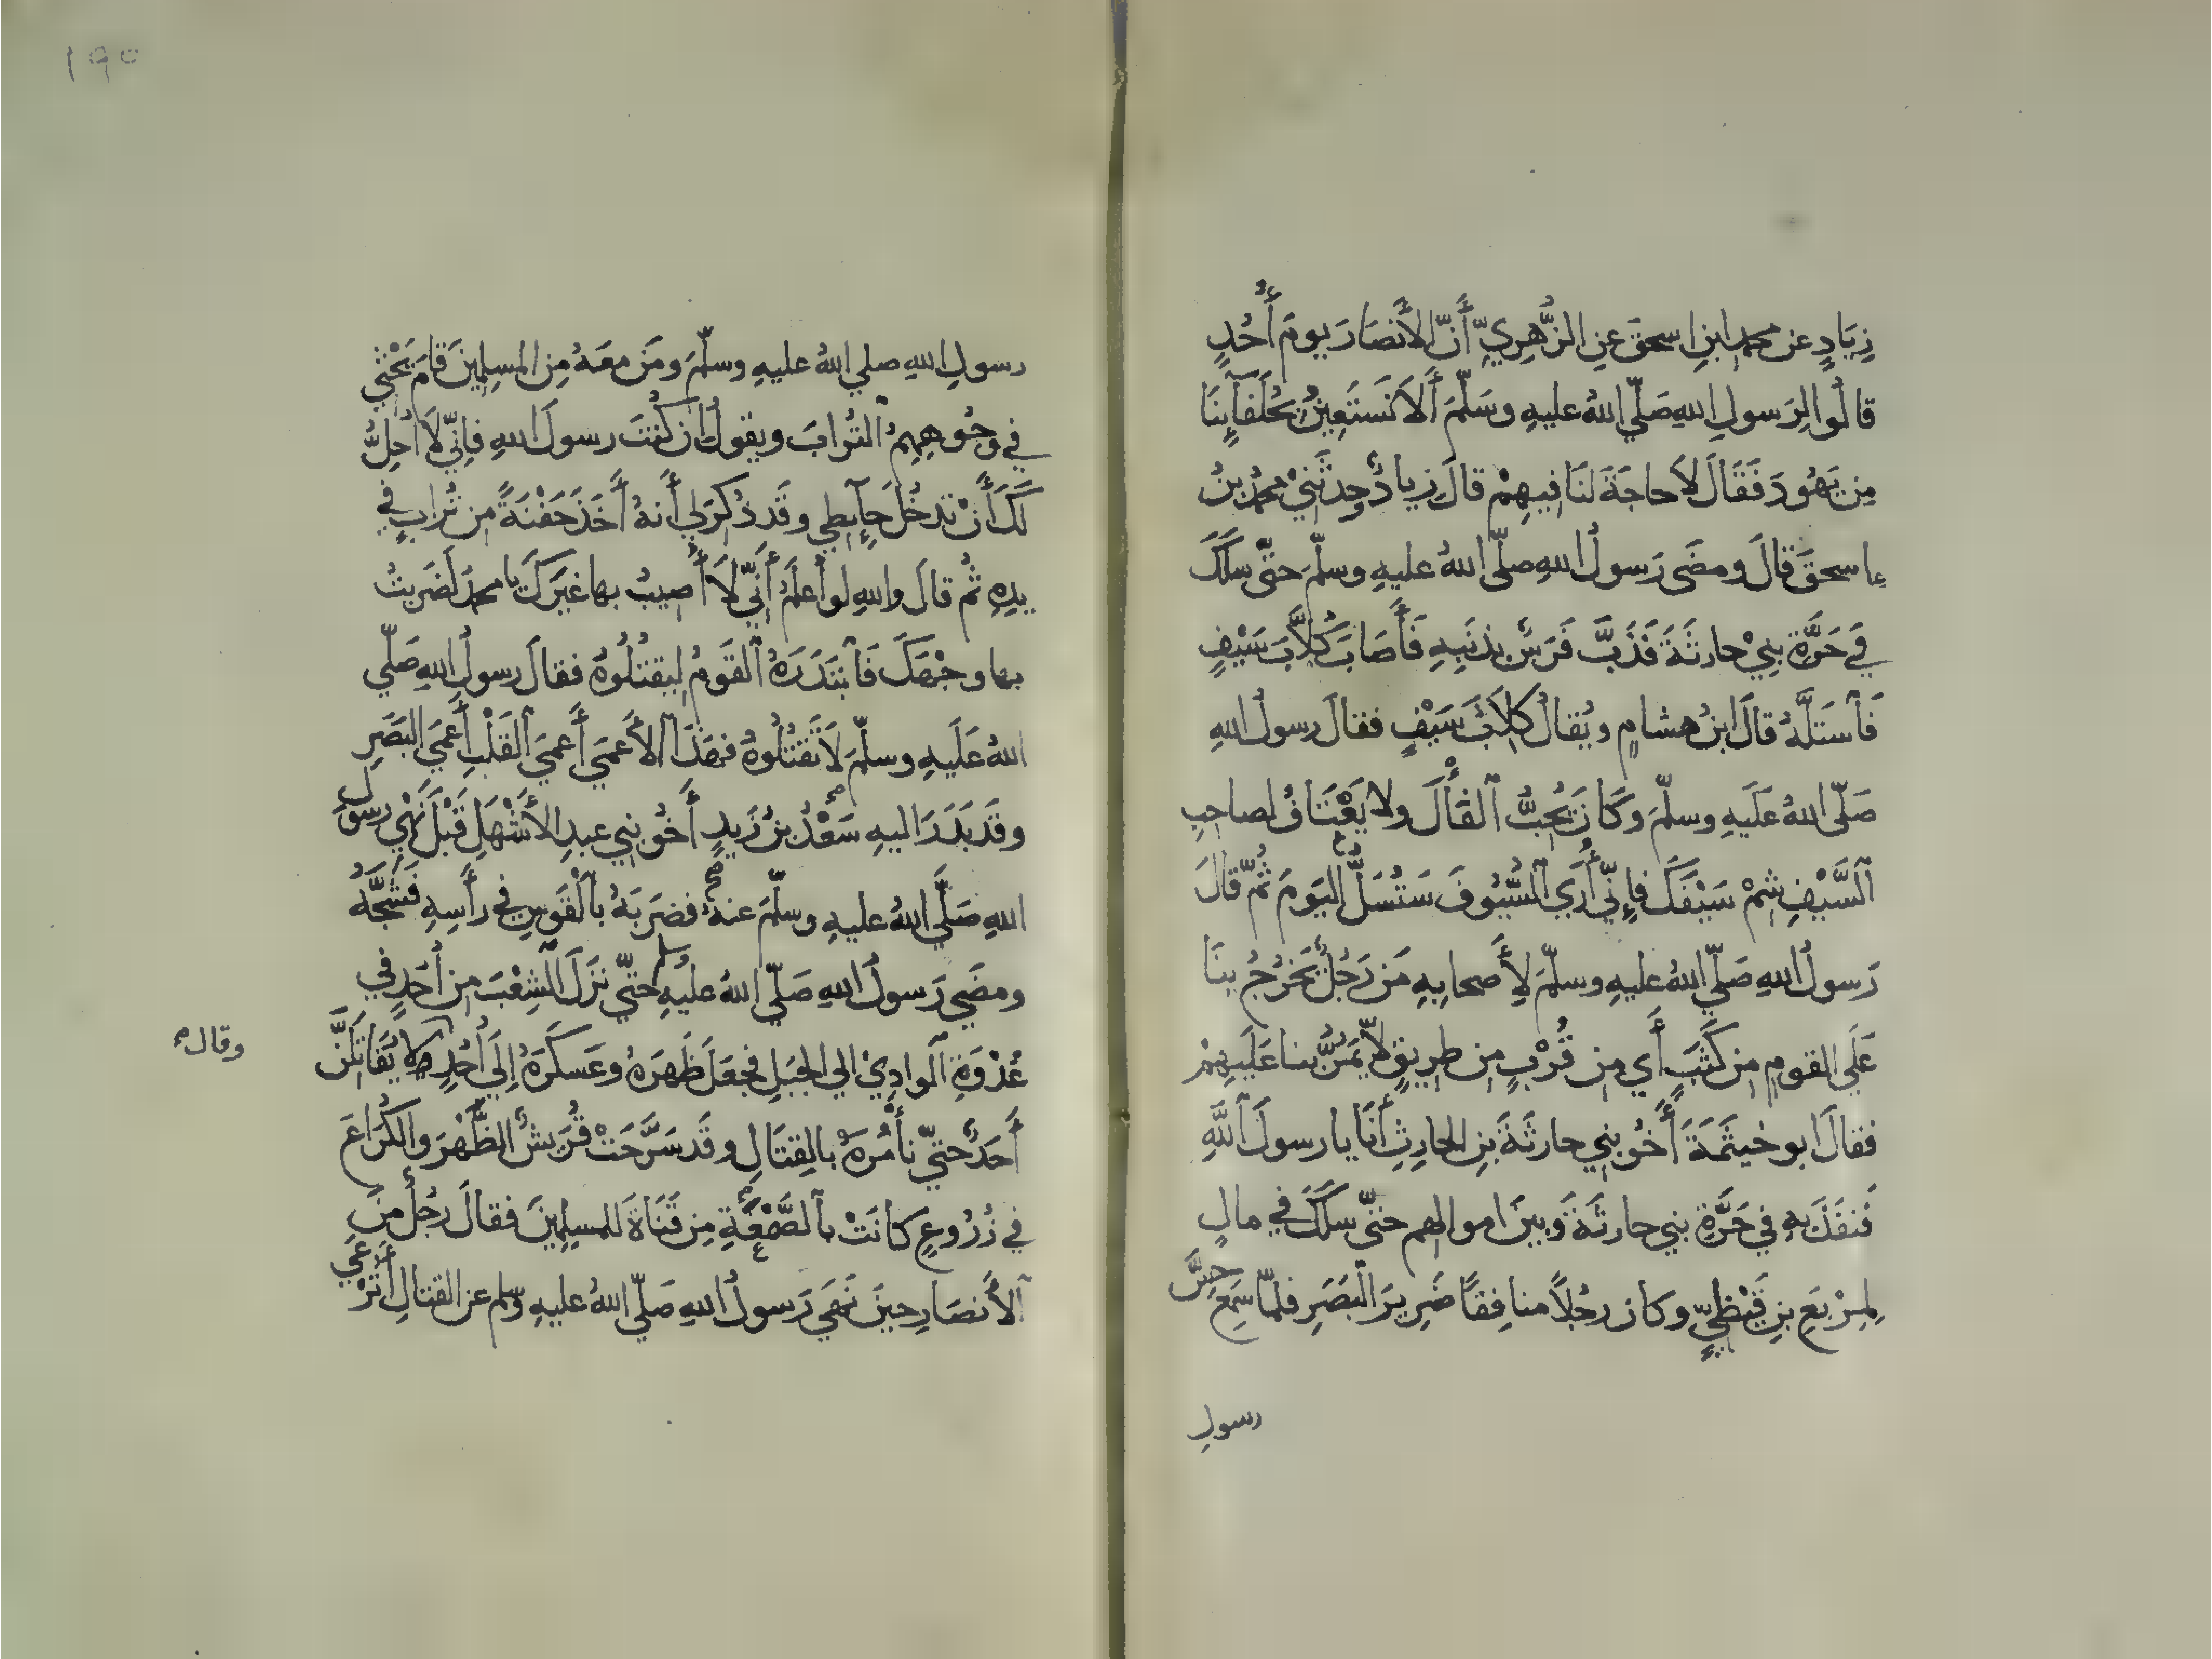 زِيَادٍ عن محمد ابنِ اسحقَ عنِ الزُّهرِيِّ أَنَّ الأَنصَارَ يومَ أُحُدٍ
قالُوا لِرَسولِ اللهِ صَلّي اللهُ عليهِ وسَلّمَ أَلَا نَستَعِينُ بحُلَفآئِنَا
مِن يَهُودَ فَقَالَ لَا حاجَةَ لنَا فيهِمْ قالَ زيادٌ وحدثَنيْ محمدُ بنُ
اسحقَ قالَ ومضَى رَسولُ اللهِ صلّى اللهُ عليهِ وسلّمَ حتّى سلَكَ
في حَرَّةِ بنِيْ حارثَةَ فَذَبَّ فَرَسٌ بذنَبِهِ فَأَصَابَ كُلَّابَ سَيْفٍ
فَٱستَلَّهُ قالَ ابنُ هشامٍ ويُقالُ كلَابُ سَيْفٍ فقالَ رسولُ اللهِ
صَلّى اللهُ عَلَيهِ وسلّمَ وكَانَ يُحِبُّ ٱلفَأْلَ ولا يَعْتَافُ لصاحبِ
ٱلسَّيْفِ شِمْ سَيْفَكَ فإِنّي أَرَي ٱلسُّيُوفَ سَتُسَلُّ اليَومَ ثُمّ قالَ
رَسولُ اللهِ صَلّي اللهُ عليهِ وسلّمَ لِأَصحابِهِ مَن رَجُلٌ يَخرُجُ بنَا
عَلَي القومِ من كَثَبٍ أَي من قُرْبٍ من طريقٍ لَا يَمُرُّ بنا عَلَيهِمْ
فقالَ ابو خيثَمَةَ أَخُو بني حارثَةَ بنِ الحارِثِ أَنَا يا رسولَ ٱللَّهِ
فَنفَذَ بهِ في حَرَّةِ بني حارثَةَ وبينَ اموالهم حتّى سلَكَ في مالٍ
لِمِرْبَعِ بنِ قَيْظيٍّ وكان رجُلاً منافِقاً ضَرِيرَ البَصَرِ فلمّا سَمِعَ حِسَّ
رسولِ
١٩٥
رسولِ اللهِ صلي اللهُ عليهِ وسلّمَ ومَن معَهُ مِن المسلمِينَ قامَ يَحْثي
في وُجُوههِمِ ٱلتُرابَ ويقولُ إن كُنتَ رسولَ اللهِ فإنّي لَا أُحِلُّ
لَكَ أَنْ تدخُلَ حآئطي وقَد ذُكرَ لي أَنهُ أَخَذَ حَفْنَةً من تُرابٍ في
يدِهِ ثُم قالَ واللهِ لو أَعلَمُ أَنّي لَا أُصيبُ بها غيرَكَ يا محمدُ لَضَربتُ
بها وجْهَكَ فَٱبتَدَرَهُ ٱلقَومُ ليقتُلُوهُ فقالَ رسولُ اللهِ صَلّي
اللهُ عَلَيهِ وسلّمَ لَا تَقتُلُوهُ فهَذَا ٱلأَعمَي أَعميَ ٱلقَلْبِ أَعمَيَ البَصَرِ
وقَد بَدَرَ اليهِ سَعْدُ بنُ زَيدٍ أَخُو بني عبدِ الأَشْهَلِ قَبْلَ نَهْي رسولِ
اللهِ صَلَّي اللهُ عليهِ وسلّمَ عنهُ فضرَبَهُ بٱلقَوسِ في رأَسِهِ فَشَجَّهُ
ومضَي رَسولُ اللهِ صَلّي اللهُ عليهِ وسلم حتّي نزَلَ ٱلشِعْبَ من أُحُدٍ في
عُدْوَةِ ٱلوادِيْ الي الجبَلِ فجعَلَ ظَهرَهُ وعَسكَرَهُ إِلَي أُحُدٍ لا يُقَاتِلَنَّ
وقال
أَحَدٌ حتيّ نأْمُرَهُ بالقِتَالِ وقَد سَرَّحَتْ قُرَيشٌ الظَّهْرَ والكُرَاعَ
في زُرُوعٍ كانَتْ بٱلصَّمْغَةِ مِن قَنَاةَ للمسلمِينَ فقالَ رَجُلٌ مِنَ
ٱلأَنصَارِ حينَ نَهَي رَسولُ اللهِ صَلّي اللهُ عليهِ وسلم عن القتالِ أَتُرْعَي